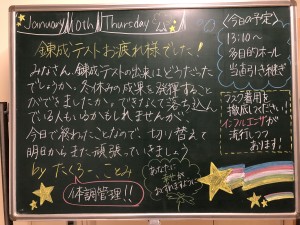 January 10th Thursday
錬成テストお疲れ様でした!
みなさん、錬成テストの出来はどうだった
でしょうか。冬休みの成果を発揮すること
ができましたか。できなくて落ち込ん
でる人もいるかもしれませんが
今日で終わったことなので、切り替えて
明日からまた頑張っていきましょう
by たくろー、ことみ
体調管理!!
あなたに
幸せが
おとずれますように
<今日の予定>
13:10〜
多目的ホール
当直引き継ぎ
マスク着用を
徹底して下さい!
インフルエンザが
流行しつつ
あります。